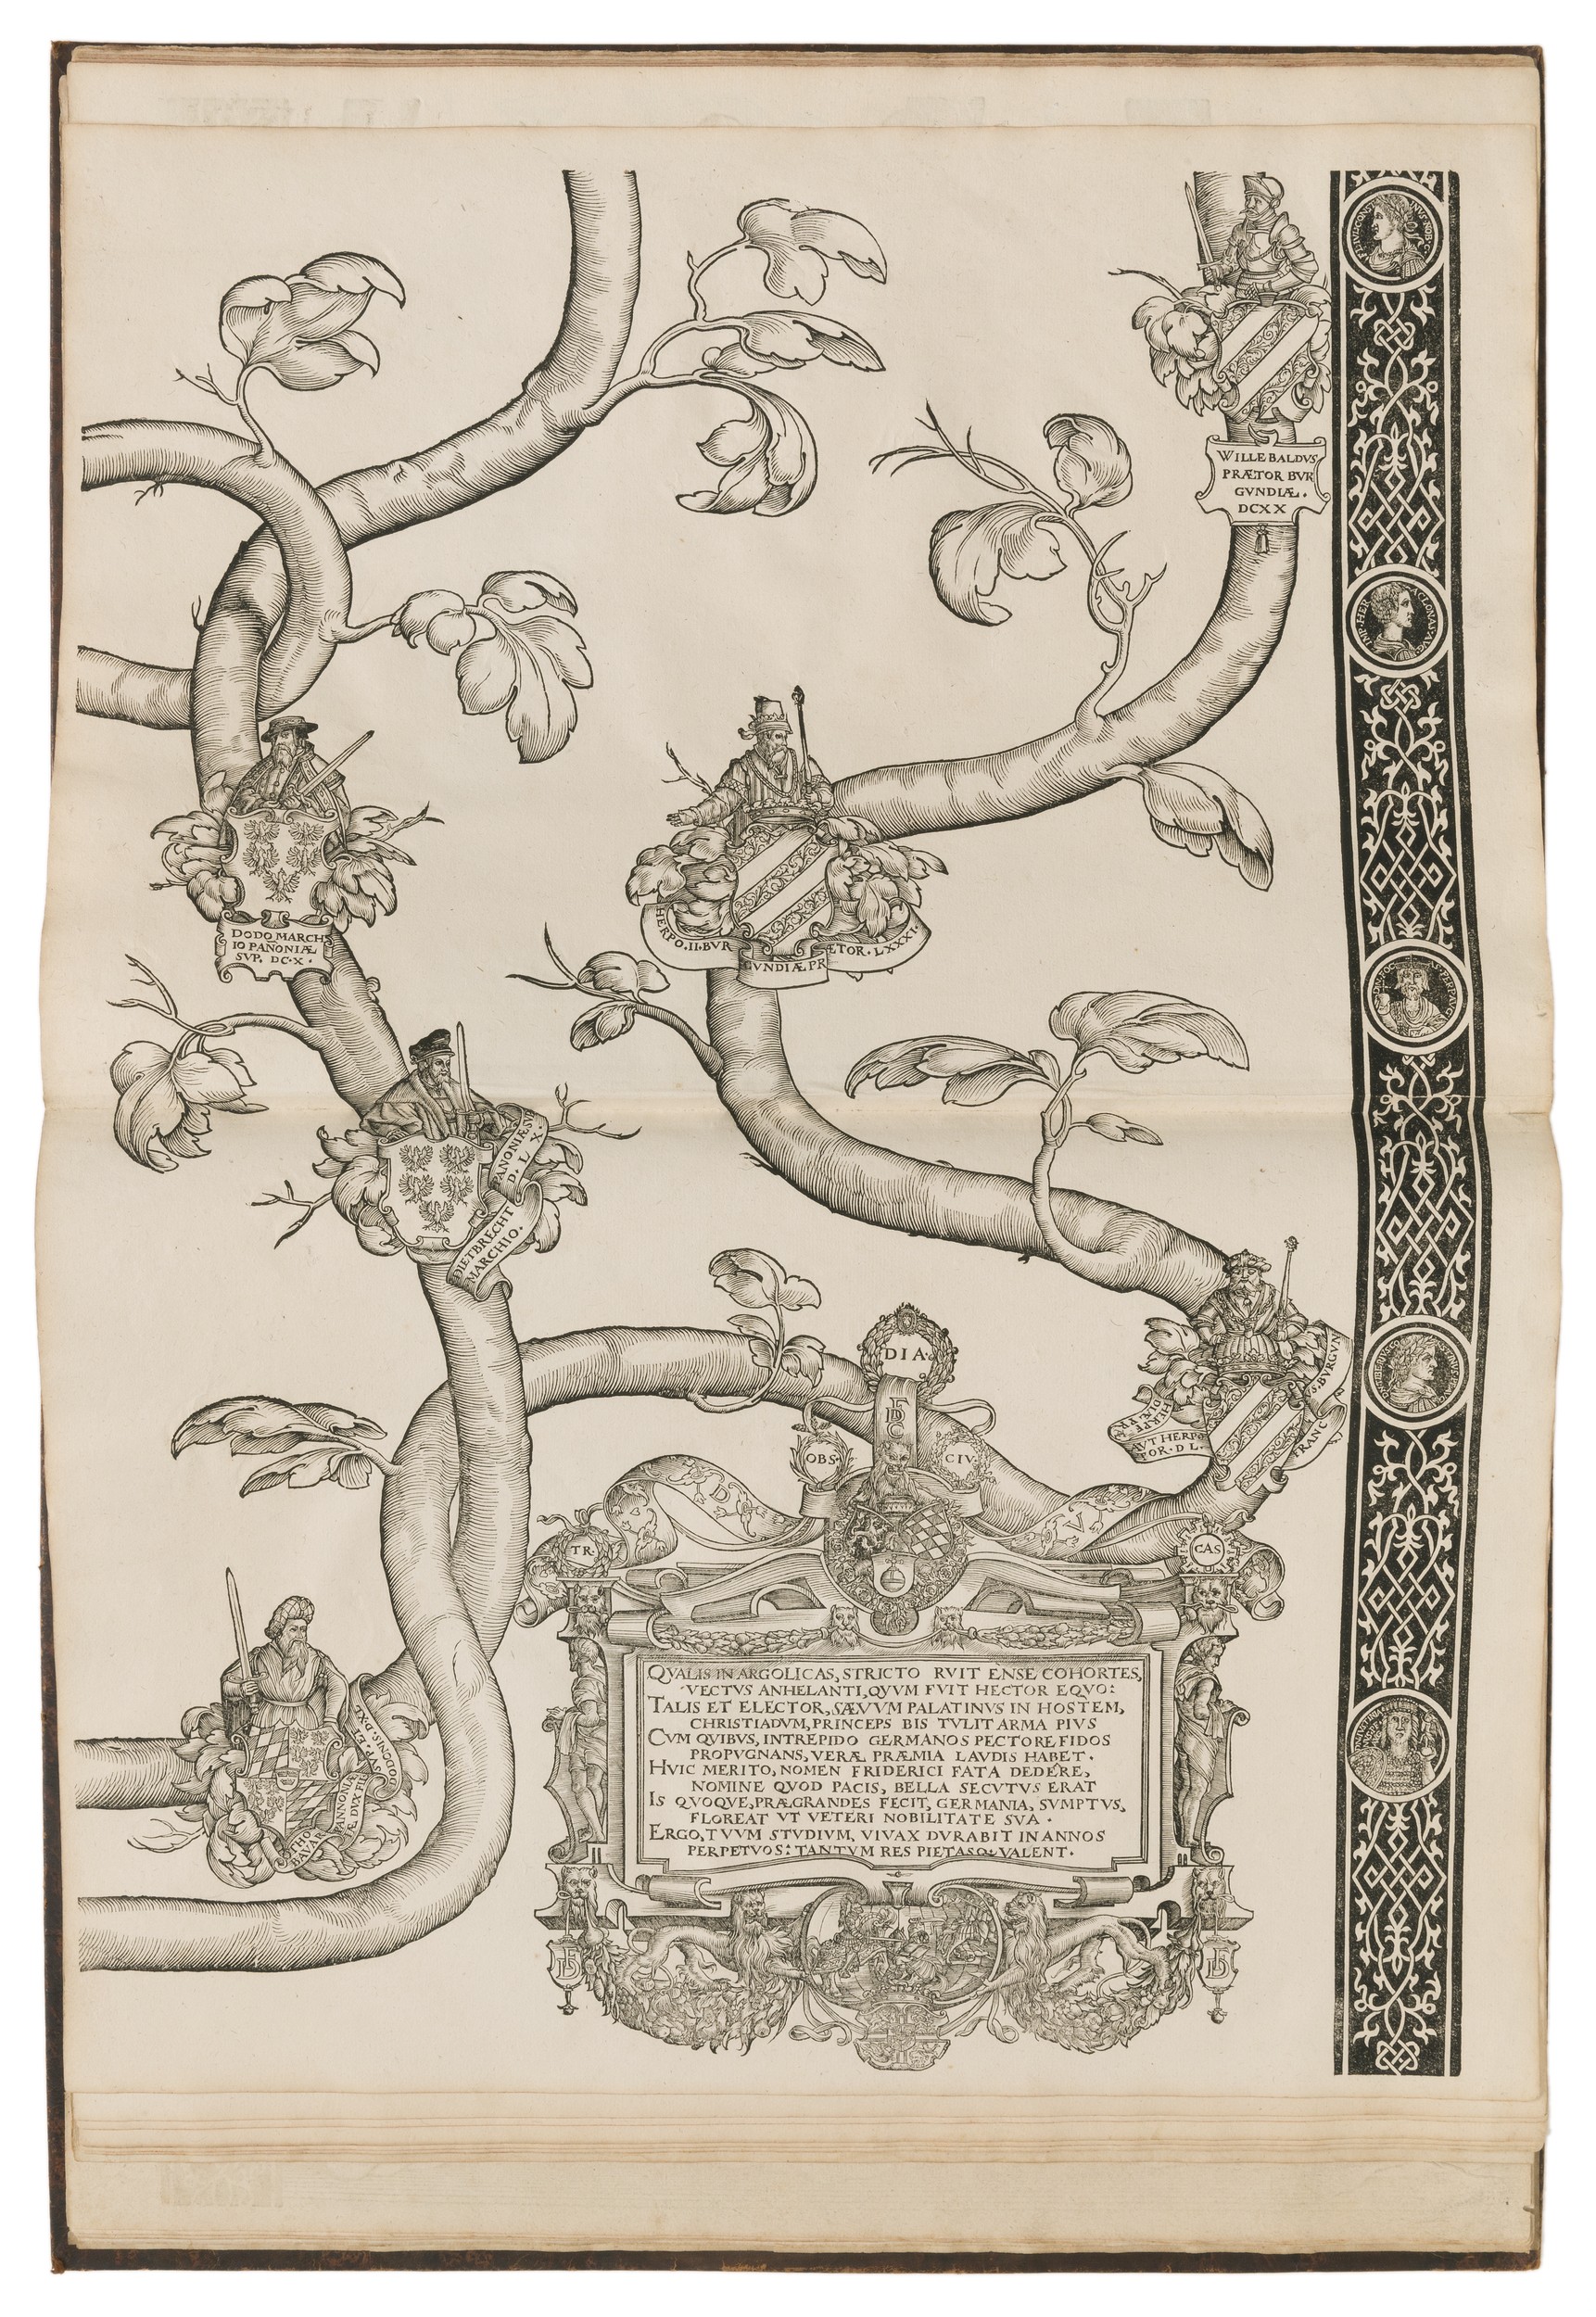 WILLEBALDVS
PRÆTOR BVR
GVNDIÆ.
DCXX
DODO MARCH
IO PAÑONIÆ
SVP. DC.X.
HERPO.II.BVR
GVNDIÆ PR
ÆTOR.LXXXI.
PANONIÆ SV
D. L X.
DIETBRECHT
MARCHIO.
DIA
OBS.
CIV.
AVT HERPO
TOR. D L.
FRANC
S. BVRGVN
TR.
D
V
CAS
OTHO
BAVAR
PANNONIA
Æ DVX FIL
SVP. ET
QVALIS IN ARGOLICAS, STRICTO RVIT ENSE COHORTES,
VECTVS ANHELANTI, QVVM FVIT HECTOR EQVO:
TALIS ET ELECTOR, SÆVVM PALATINVS IN HOSTEM,
CHRISTIADVM, PRINCEPS BIS TVLIT ARMA PIVS
CVM QVIBVS, INTREPIDO GERMANOS PECTORE FIDOS
PROPVGNANS, VERÆ PRÆMIA LAVDIS HABET.
HVIC MERITO, NOMEN FRIDERICI FATA DEDÊRE,
NOMINE QVOD PACIS, BELLA SECVTVS ERAT
IS QVOQVE, PRÆGRANDES FECIT, GERMANIA, SVMPTVS,
FLOREAT VT VETERI NOBILITATE SVA.
ERGO, TVVM STVDIVM, VIVAX DVRABIT IN ANNOS
PERPETVOS: TANTVM RES PIETASQ; VALENT.